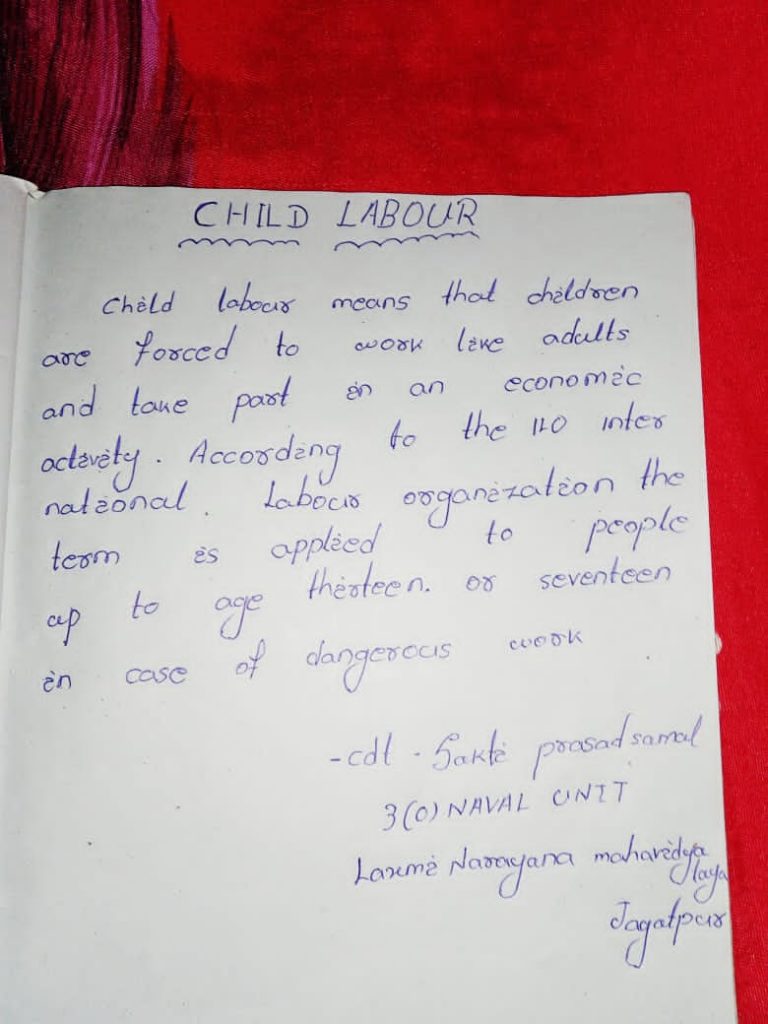 CHILD LABOUR
Child labour means that children
are forced to work like adults
and take part in an economic
activity. According to the ILO inter
national. Labour organization the
term is applied to people
up to age thirteen. or seventeen
in case of dangerous work
-cdt - Sakti prasad samal
3(O) NAVAL UNIT
Laxmi Narayana mahavidya
laya
Jagatpur